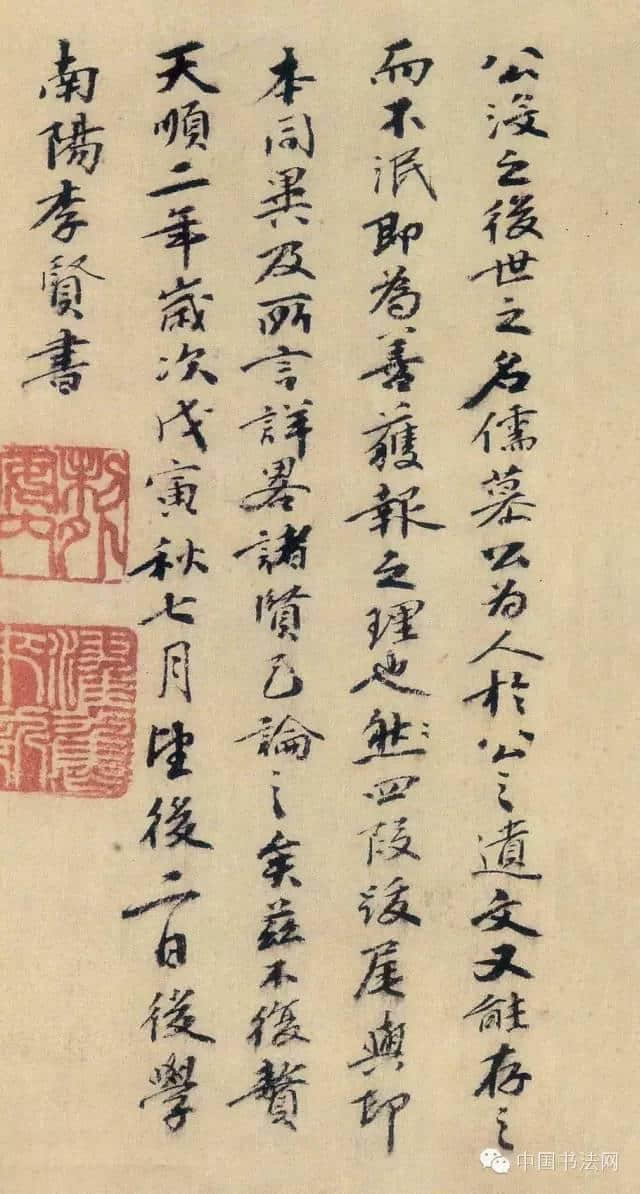 公没之後世之名儒慕公为人於公之遺文又能存之
而不泯即為善獲報之理也然四段後尾與印
本同異及所言詳畧諸賢已論之矣兹不復贅
天順二年歲次戊寅秋七月望後二日後學
南陽李賢書
中国书法网